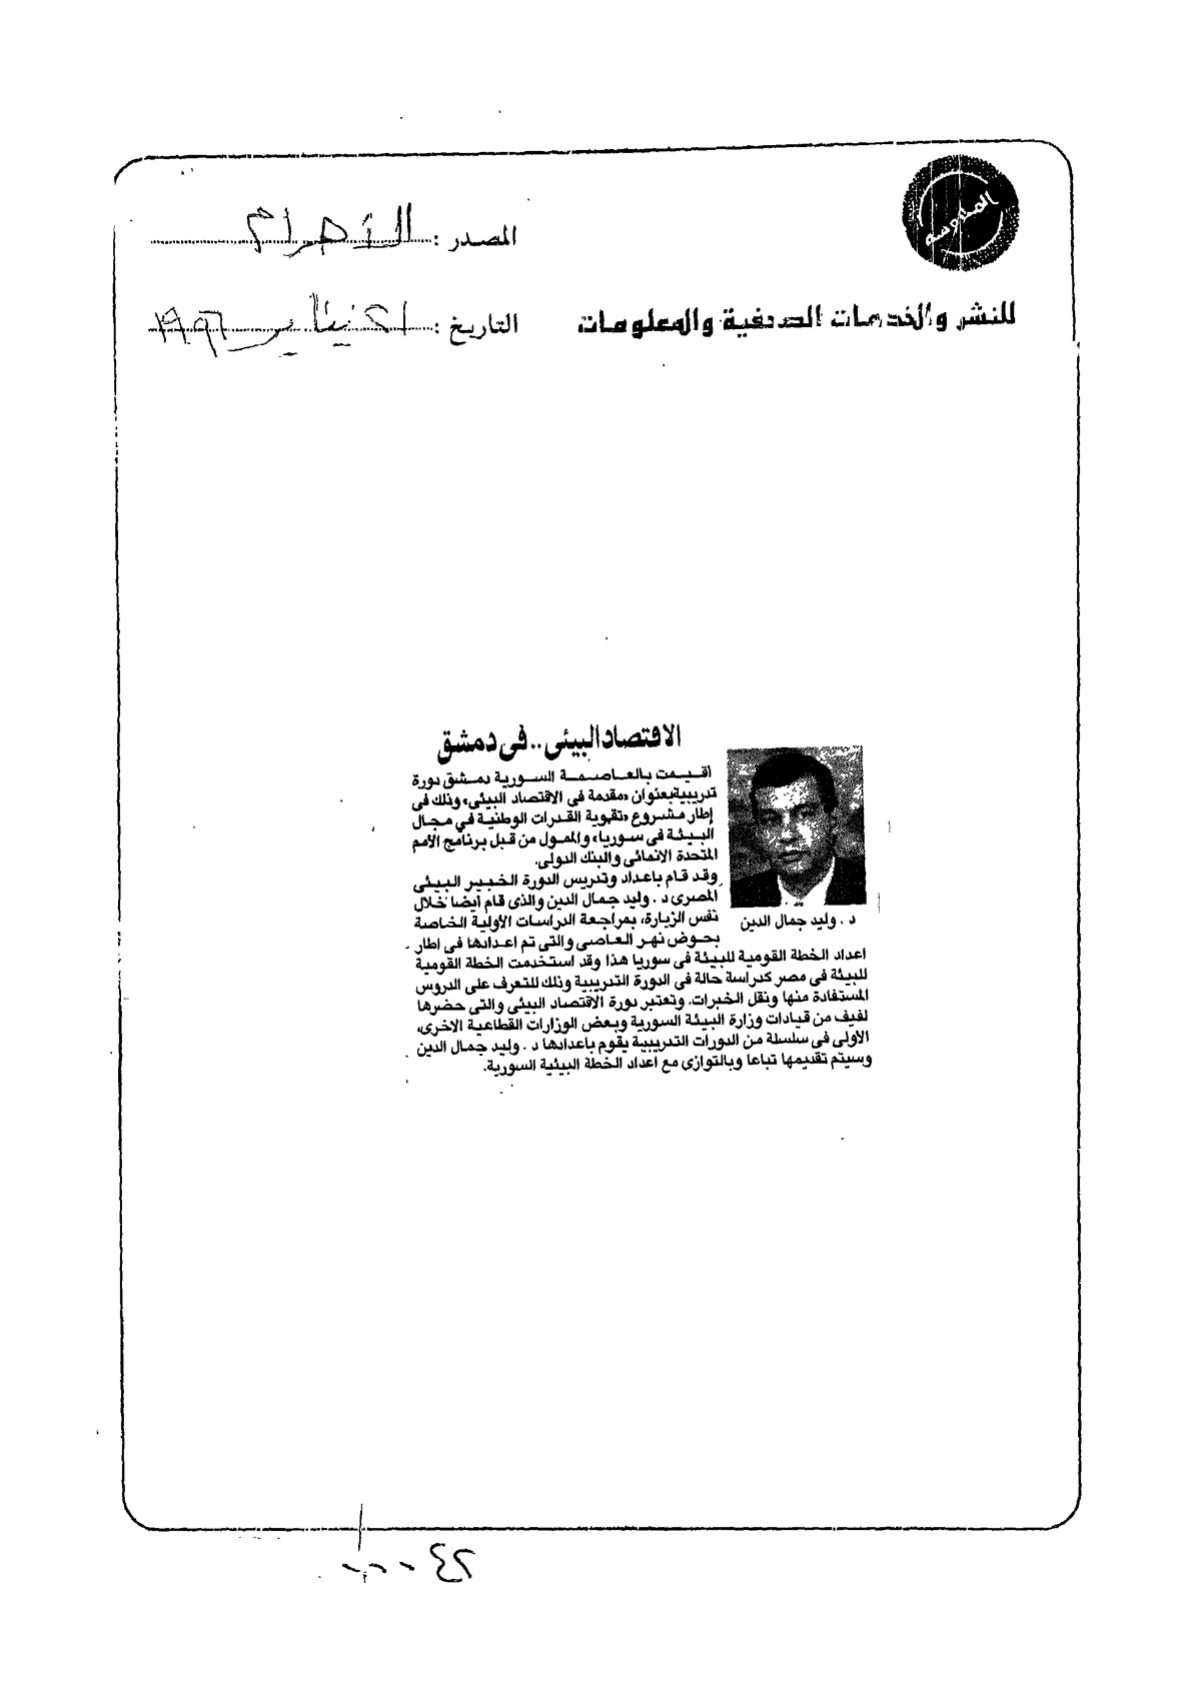 المحروسة
المصدر : الأهرام
للنشر والخدمات الصحفية والمعلومات
التاريخ : ٢١ يناير ١٩٩٦
الاقتصاد البيئى .. فى دمشق
أقيمت بالعاصمة السورية دمشق دورة
تدريبية بعنوان «مقدمة فى الاقتصاد البيئى» وذلك فى
إطار مشروع «تقوية القدرات الوطنية فى مجال
البيئة فى سوريا» والممول من قبل برنامج الأمم
المتحدة الانمائى والبنك الدولى.
وقد قام باعداد وتدريس الدورة الخبير البيئى
المصرى د . وليد جمال الدين والذى قام أيضا خلال
نفس الزيارة، بمراجعة الدراسات الأولية الخاصة
بحوض نهر العاصى والتى تم اعدادها فى اطار
د . وليد جمال الدين
اعداد الخطة القومية للبيئة فى سوريا هذا وقد استخدمت الخطة القومية
للبيئة فى مصر كدراسة حالة فى الدورة التدريبية وذلك للتعرف على الدروس
المستفادة منها ونقل الخبرات. وتعتبر دورة الاقتصاد البيئى والتى حضرها
لفيف من قيادات وزارة البيئة السورية وبعض الوزارات القطاعية الاخرى،
الأولى فى سلسلة من الدورات التدريبية يقوم باعدادها د . وليد جمال الدين
وسيتم تقديمها تباعا وبالتوازى مع اعداد الخطة البيئية السورية.